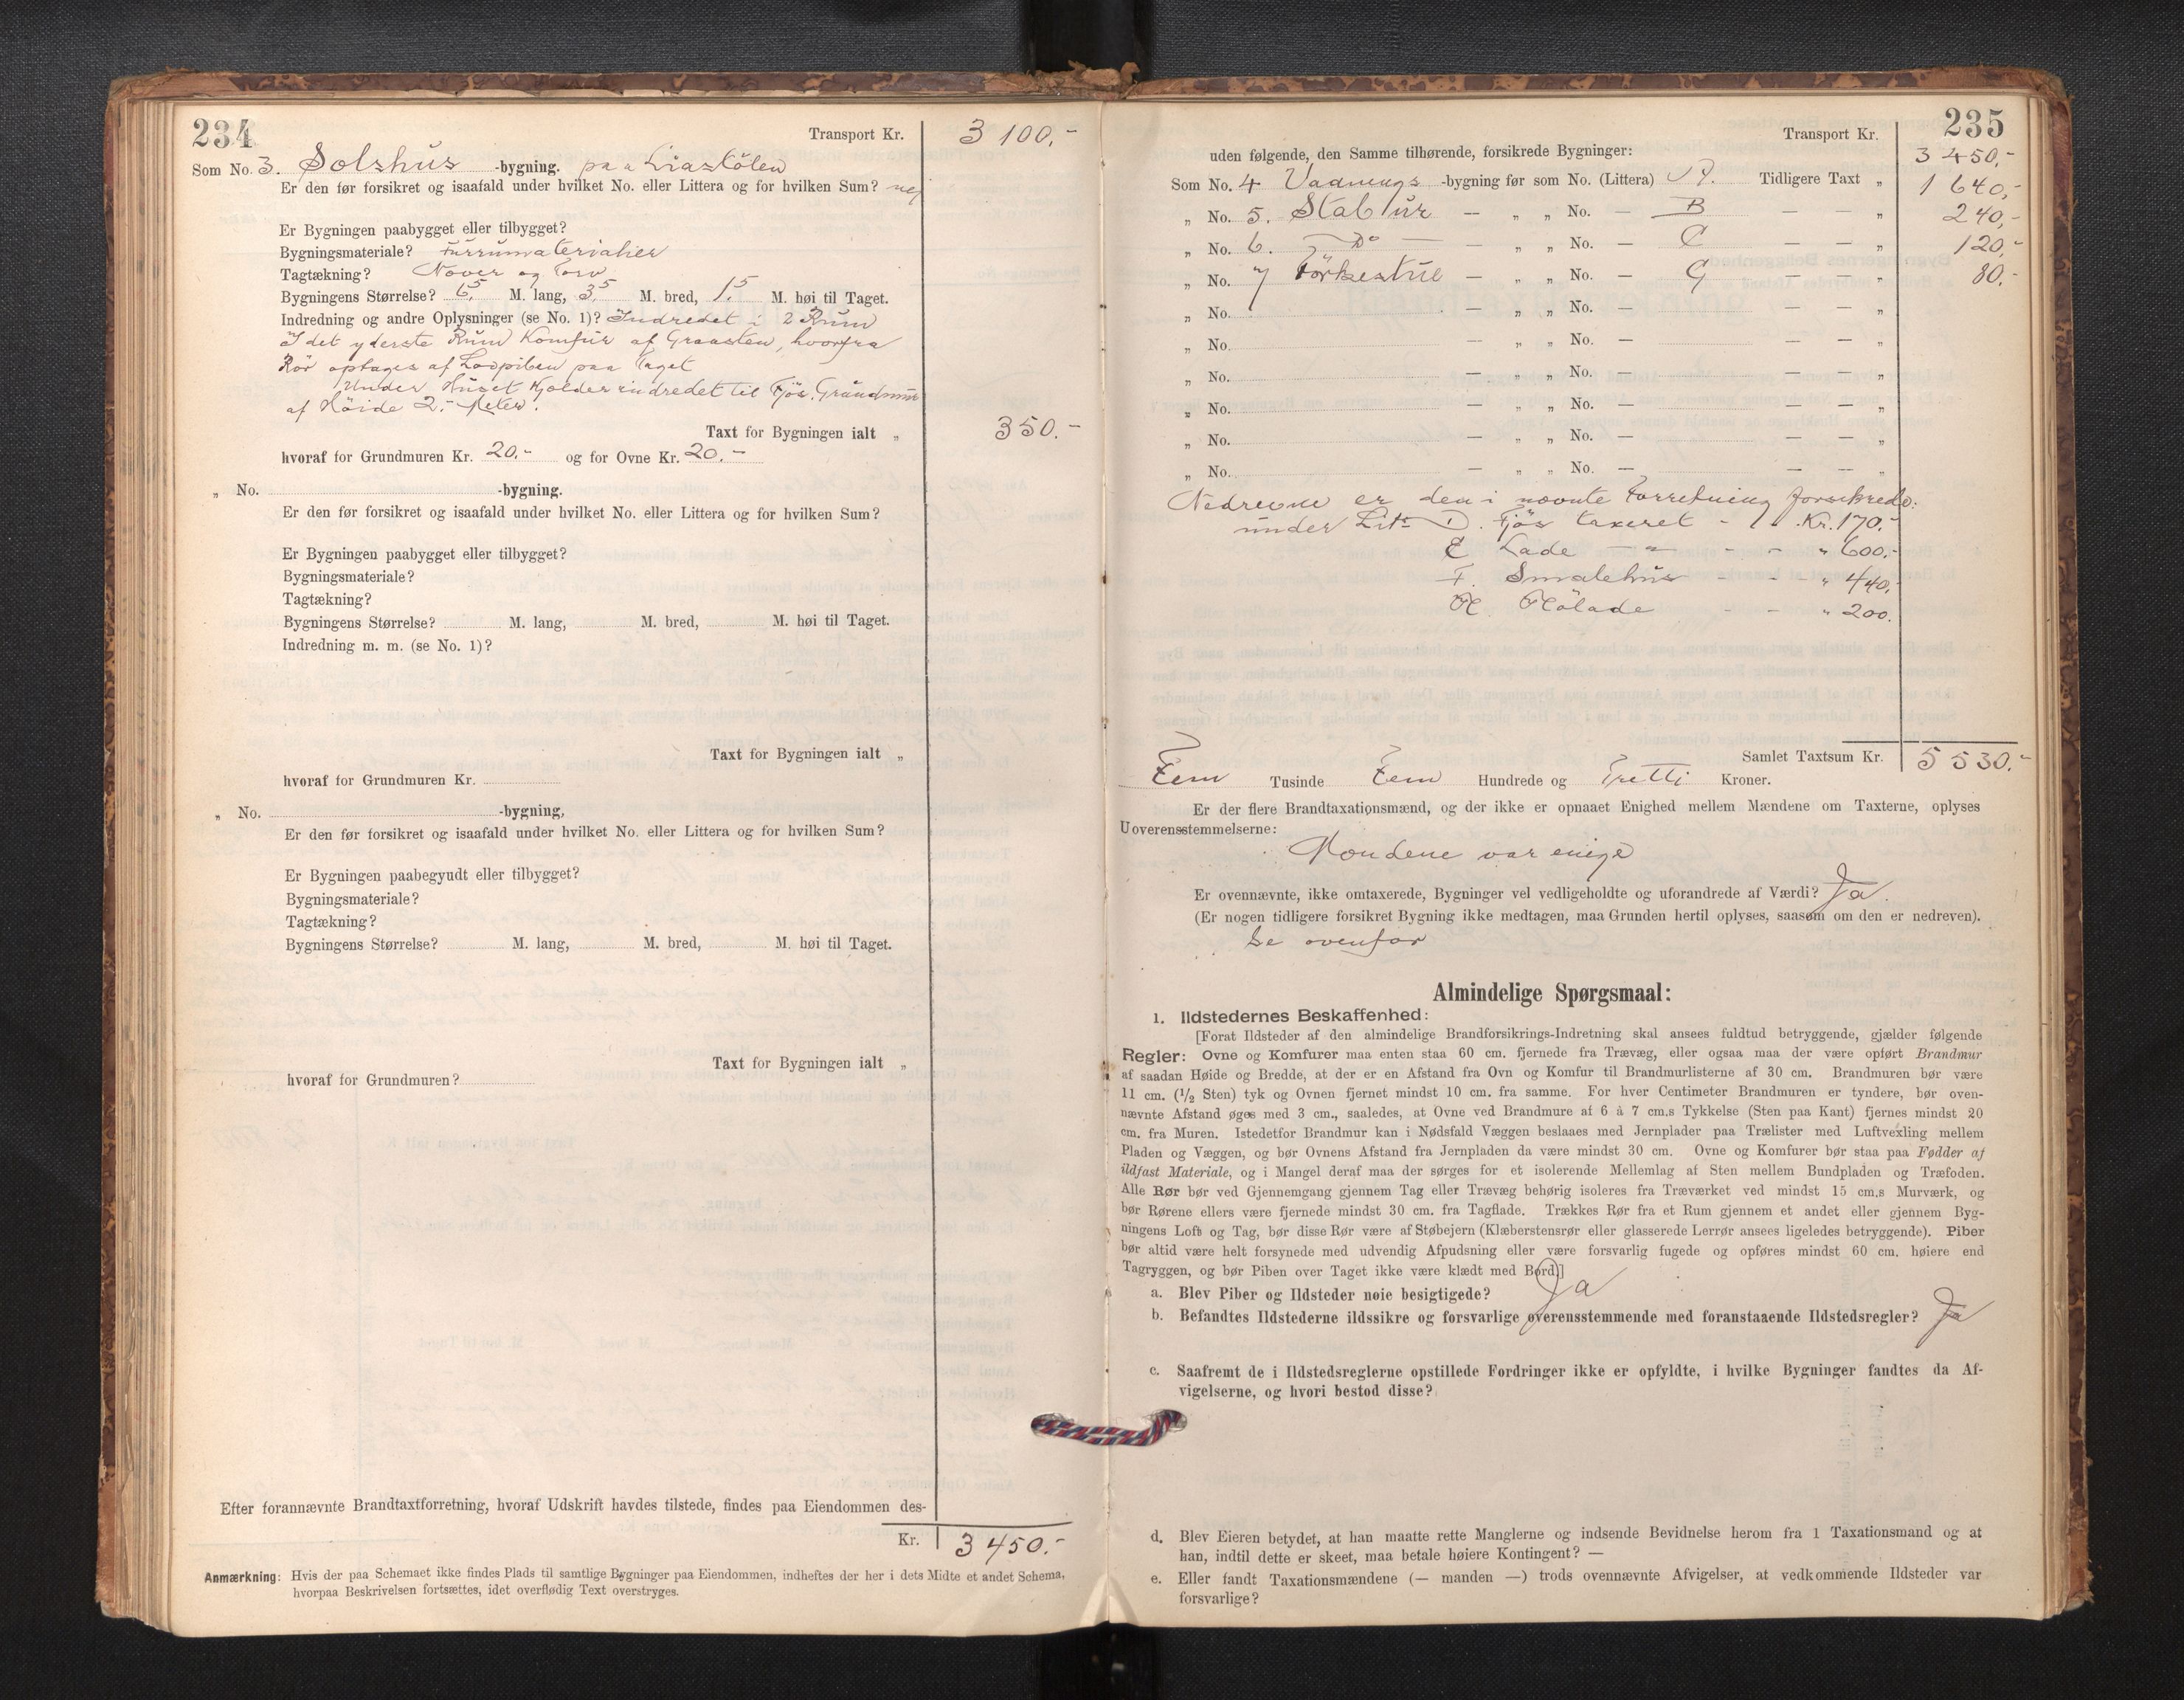 234
Transport Kr. 3 100,-
Som No. 3. Solshus -bygning. paa Liastölen
Er den før forsikret og isaafald under hvilket No. eller Littera og for hvilken Sum? nej
Er Bygningen paabygget eller tilbygget?
Bygningsmateriale? Furrumaterialier
Tagtækning? Næver og Torv
Bygningens Størrelse? 6,5 M. lang, 3,5 M. bred, 1,5 M. høi til Taget.
Indredning og andre Oplysninger (se No. 1)? Indredet i 2 Rum
I det yderste Rum Komfur af Graasten, hvorfra
Rör optages af Lodpiben paa Taget
Under Huset Kjelder indredet til Fjös. Grundmur
af Höide 2,- Meter.
Taxt for Bygningen ialt „ 350.-
hvoraf for Grundmuren Kr. 20.- og for Ovne Kr. 20.-
„ No. -bygning.
Er den før forsikret og isaafald under hvilket No. eller Littera og for hvilken Sum?
Er Bygningen paabygget eller tilbygget?
Bygningsmateriale?
Tagtækning?
Bygningens Størrelse? M. lang, M. bred, M. høi til Taget.
Indredning m. m. (se No. 1)?
Taxt for Bygningen ialt „
hvoraf for Grundmuren Kr.
„ No. -bygning,
Er den før forsikret og isaafald under hvilket No. eller Littera og for hvilken Sum?
Er Bygningen paabegyudt eller tilbygget?
Bygningsmateriale?
Tagtækning?
Bygningens Størrelse? M. lang, M. bred, M. høi til Taget.
Taxt for Bygningen ialt „
hvoraf for Grundmuren?
Efter forannævnte Brandtaxtforretning, hvoraf Udskrift havdes tilstede, findes paa Eiendommen des-
Kr. 3 450.-
Anmærkning: Hvis der paa Schemaet ikke findes Plads til samtlige Bygninger paa Eiendommen, indheftes der her i dets Midte et andet Schema,
hvorpaa Beskrivelsen fortsættes, idet overflødig Text overstryges.
235
Transport Kr.
uden følgende, den Samme tilhørende, forsikrede Bygninger: 3 450,-
Som No. 4 Vaanings -bygning før som No. (Littera) A. Tidligere Taxt „ 1 640,-
„ No. 5. Stabur — „ „ No. — B — — „ 240,-
„ No. 6. — Do — — „ „ No. — C — — „ 120,-
„ No. 7 Törkestue — „ „ No. — G — — „ 80.-
„ No. — „ „ No. — — — „
„ No. — „ „ No. — — — „
„ No. — „ „ No. — — — „
„ No. — „ „ No. — — — „
„ No. — „ „ No. — — — „
„ No. — „ „ No. — — — „
Nedrevne er den i nævnte Forretning forsikrede:
under Litr D. Fjös taxeret - „ Kr. 170.-
E Lade — „ - - „ 600.-
F. Smalehus - - - „ 440.-
H. Hölade - - „ 200.
Samlet Taxtsum Kr. 5 530.-
Fem Tusinde Fem Hundrede og Tretti Kroner.
Er der flere Brandtaxationsmænd, og der ikke er opnaaet Enighed mellem Mændene om Taxterne, oplyses
Uoverensstemmelserne:
Mændene var enige
Er ovennævnte, ikke omtaxerede, Bygninger vel vedligeholdte og uforandrede af Værdi? Ja.
(Er nogen tidligere forsikret Bygning ikke medtagen, maa Grunden hertil oplyses, saasom om den er nedreven).
Se ovenfor
Almindelige Spørgsmaal:
1. Ildstedernes Beskaffenhed:
[Forat Ildsteder af den almindelige Brandforsikrings-Indretning skal ansees fuldtud betryggende, gjælder følgende
Regler: Ovne og Komfurer maa enten staa 60 cm. fjernede fra Trævæg, eller ogsaa maa der være opført Brandmur
af saadan Høide og Bredde, at der er en Afstand fra Ovn og Komfur til Brandmurlisterne af 30 cm. Brandmuren bør være
11 cm. (1/2 Sten) tyk og Ovnen fjernet mindst 10 cm. fra samme. For hver Centimeter Brandmuren er tyndere, bør oven-
nævnte Afstand øges med 3 cm., saaledes, at Ovne ved Brandmure af 6 à 7 cm.s Tykkelse (Sten paa Kant) fjernes mindst 20
cm. fra Muren. Istedetfor Brandmur kan i Nødsfald Væggen beslaaes med Jernplader paa Trælister med Luftvexling mellem
Pladen og Væggen, og bør Ovnens Afstand fra Jernpladen da være mindst 30 cm. Ovne og Komfurer bør staa paa Fødder af
ildfast Materiale, og i Mangel deraf maa der sørges for et isolerende Mellemlag af Sten mellem Bundpladen og Træfoden.
Alle Rør bør ved Gjennemgang gjennem Tag eller Trævæg behørig isoleres fra Træværket ved mindst 15 cm.s Murværk, og
bør Rørene ellers være fjernede mindst 30 cm. fra Tagflade. Trækkes Rør fra et Rum gjennem et andet eller gjennem Byg-
ningens Loft og Tag, bør disse Rør være af Støbejern (Klæberstensrør eller glasserede Lerrør ansees ligeledes betryggende). Piber
bør altid være helt forsynede med udvendig Afpudsning eller være forsvarlig fugede og opføres mindst 60 cm. høiere end
Tagryggen, og bør Piben over Taget ikke være klædt med Bord.]
a. Blev Piber og Ildsteder nøie besigtigede? Ja
b. Befandtes Ildstederne ildssikre og forsvarlige overensstemmende med foranstaaende Ildstedsregler? Ja
c. Saafremt de i Ildstedsreglerne opstillede Fordringer ikke er opfyldte, i hvilke Bygninger fandtes da Af-
vigelserne, og hvori bestod disse?
d. Blev Eieren betydet, at han maatte rette Manglerne og indsende Bevidnelse herom fra 1 Taxationsmand og at
han, indtil dette er skeet, maa betale høiere Kontingent? —
e. Eller fandt Taxationsmændene (— manden —) trods ovennævnte Afvigelser, at vedkommende Ildsteder var
forsvarlige?